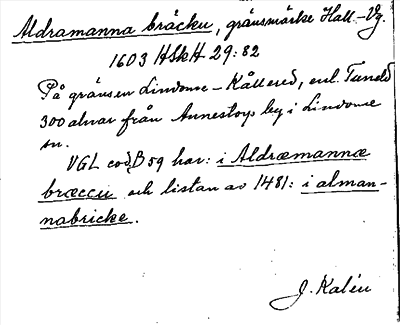 Aldramanna bräcku, gränsmärke Hall.-Vg.
1603 HSkH 29:82
På gränsen Lindome - Kållered, enl. Tuneld
300 alnar från Annestorps by i Lindome
sn.
VGL cod. B 59 har: i Aldræmannæ
bræccu och listan av 1481: i alman-
nabricke.
J. Kalén